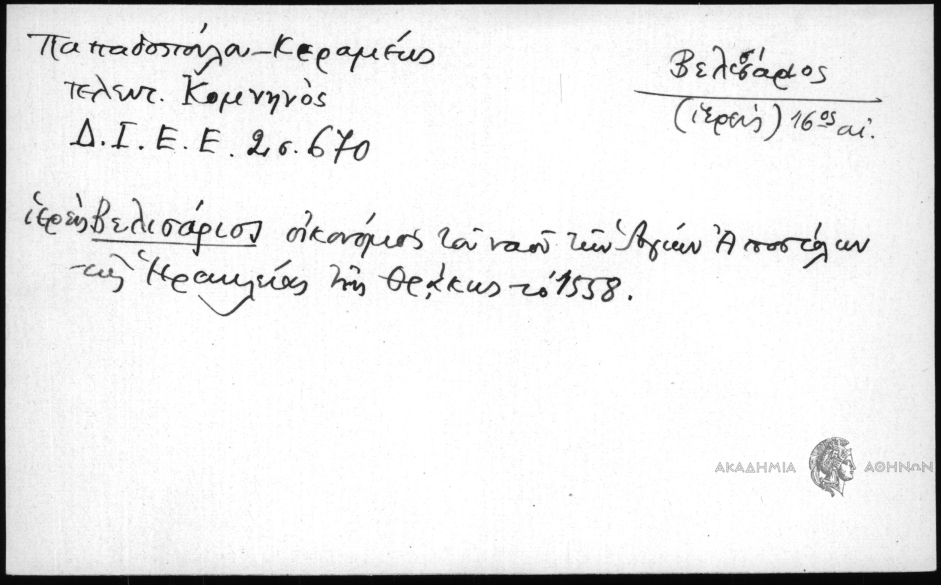 Παπαδοπούλου-Κεραμεύς
τελευτ. Κομνηνός
Δ.Ι.Ε.Ε. 2 σ. 670
Βελισάριος
(ἱερεὺς) 16ος αἰ.
ἱερεὺς Βελισάριος οἰκονόμος τοῦ ναοῦ τῶν Ἁγίων Ἀποστόλων
τῆς Ἡρακλείας τῆς Θράκης τὸ 1558.
ΑΚΑΔΗΜΙΑ ΑΘΗΝΩΝ